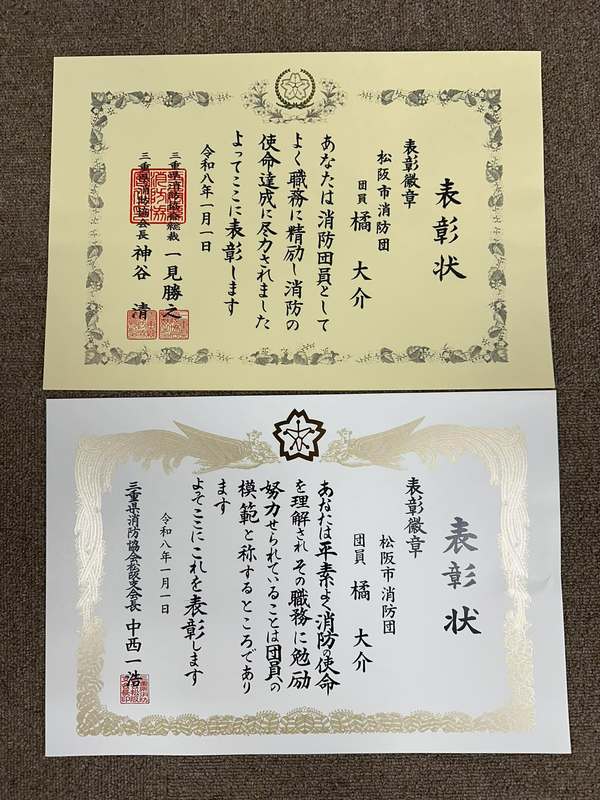 表彰状
表彰徽章
松阪市消防団
団員 橘 大介
あなたは消防団員として
よく職務に精励し消防の
使命達成に尽力されました
よってここに表彰します
令和八年一月一日
三重県消防協会総裁 一見勝之
三重県消防協会長 神谷 清
表彰状
表彰徽章
松阪市消防団
団員 橘 大介
あなたは平素よく消防の使命
を理解され その職務に勉励
努力せられていることは団員の
模範と称するところであり
ます
よってここにこれを表彰します
令和八年一月一日
三重県消防協会松阪支会長 中西一浩